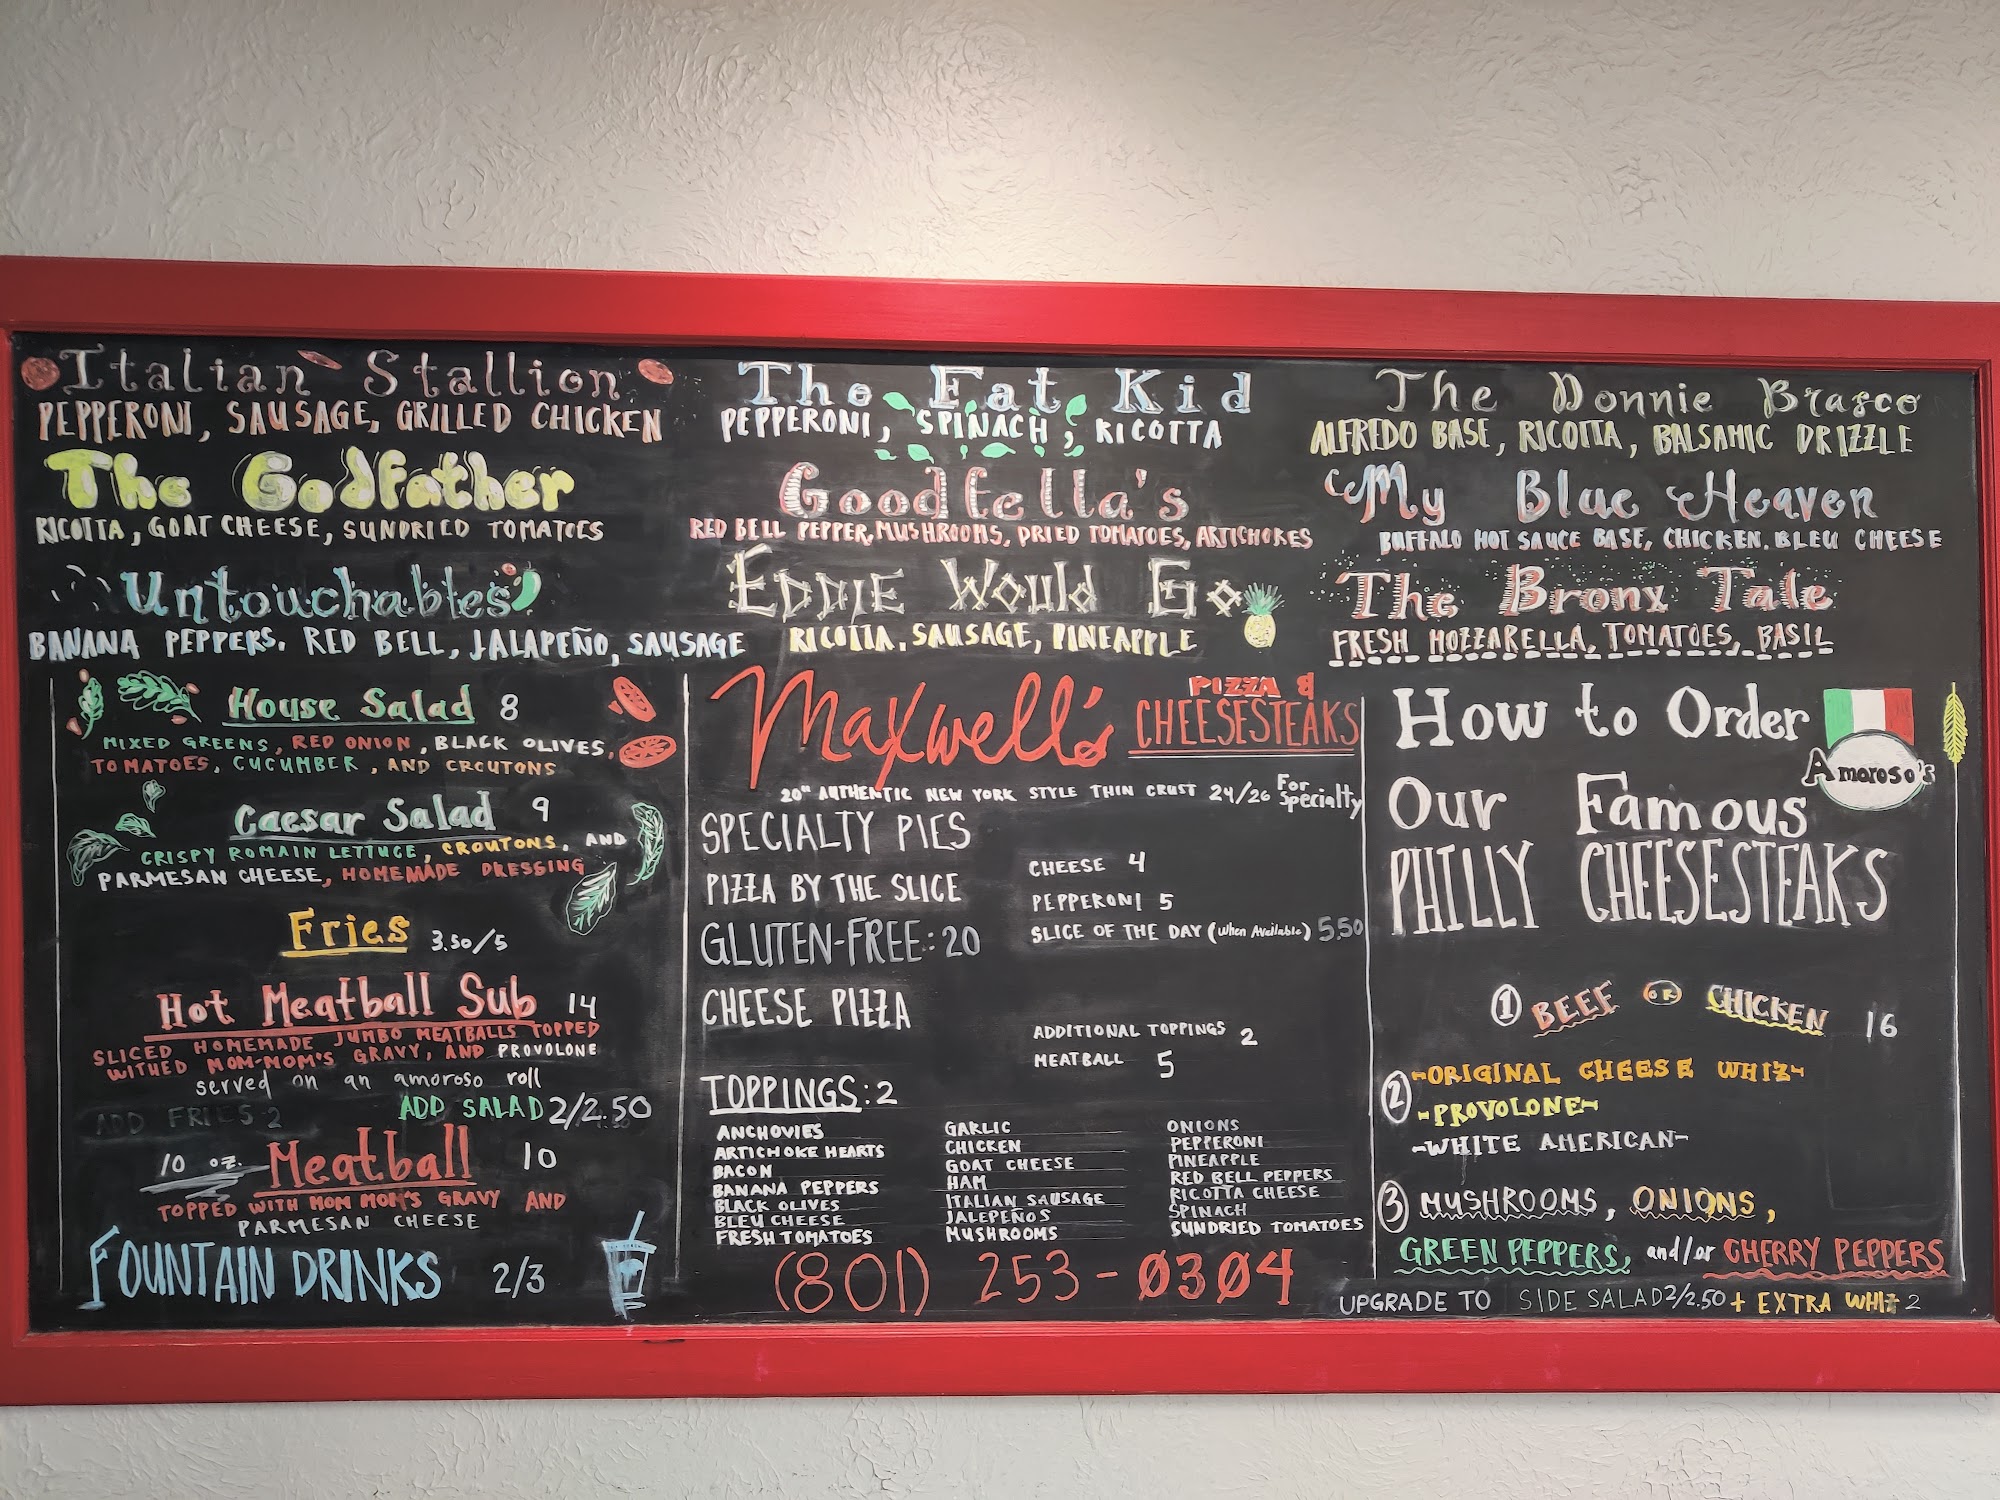 Italian Stallion
PEPPERONI, SAUSAGE, GRILLED CHICKEN
The Godfather
RICOTTA, GOAT CHEESE, SUNDRIED TOMATOES
Untouchables
BANANA PEPPERS, RED BELL, JALAPEÑO, SAUSAGE
The Fat Kid
PEPPERONI, SPINACH, RICOTTA
Goodfella's
RED BELL PEPPER, MUSHROOMS, DRIED TOMATOES, ARTICHOKES
EDDIE Would Go
RICOTTA, SAUSAGE, PINEAPPLE
The Donnie Brasco
ALFREDO BASE, RICOTTA, BALSAMIC DRIZZLE
My Blue Heaven
BUFFALO HOT SAUCE BASE, CHICKEN, BLEU CHEESE
The Bronx Tale
FRESH MOZZARELLA, TOMATOES, BASIL
House Salad 8
MIXED GREENS, RED ONION, BLACK OLIVES,
TOMATOES, CUCUMBER, AND CROUTONS
Caesar Salad 9
CRISPY ROMAIN LETTUCE, CROUTONS, AND
PARMESAN CHEESE, HOMEMADE DRESSING
Fries 3.50/5
Hot Meatball Sub 14
SLICED HOMEMADE JUMBO MEATBALLS TOPPED
WITHED MOM-MOM'S GRAVY, AND PROVOLONE
served on an amoroso roll
ADD FRIES 2 ADD SALAD 2/2.50
10 oz. Meatball 10
TOPPED WITH MOM MOM'S GRAVY AND
PARMESAN CHEESE
FOUNTAIN DRINKS 2/3
Maxwell's PIZZA &
CHEESESTEAKS
20" AUTHENTIC NEW YORK STYLE THIN CRUST 24/26 For Specialty
SPECIALTY PIES
PIZZA BY THE SLICE
CHEESE 4
PEPPERONI 5
SLICE OF THE DAY (When Available) 5.50
GLUTEN-FREE: 20
CHEESE PIZZA
ADDITIONAL TOPPINGS 2
MEATBALL 5
TOPPINGS: 2
ANCHOVIES
ARTICHOKE HEARTS
BACON
BANANA PEPPERS
BLACK OLIVES
BLEU CHEESE
FRESH TOMATOES
GARLIC
CHICKEN
GOAT CHEESE
HAM
ITALIAN SAUSAGE
JALEPEÑOS
MUSHROOMS
ONIONS
PEPPERONI
PINEAPPLE
RED BELL PEPPERS
RICOTTA CHEESE
SPINACH
SUNDRIED TOMATOES
(801) 253-0304
How to Order
Amoroso's
Our Famous
PHILLY CHEESESTEAKS
① BEEF OR CHICKEN 16
② ~ORIGINAL CHEESE WHIZ~
~PROVOLONE~
~WHITE AMERICAN~
③ MUSHROOMS, ONIONS,
GREEN PEPPERS, and/or CHERRY PEPPERS
UPGRADE TO SIDE SALAD 2/2.50 + EXTRA WHIZ 2